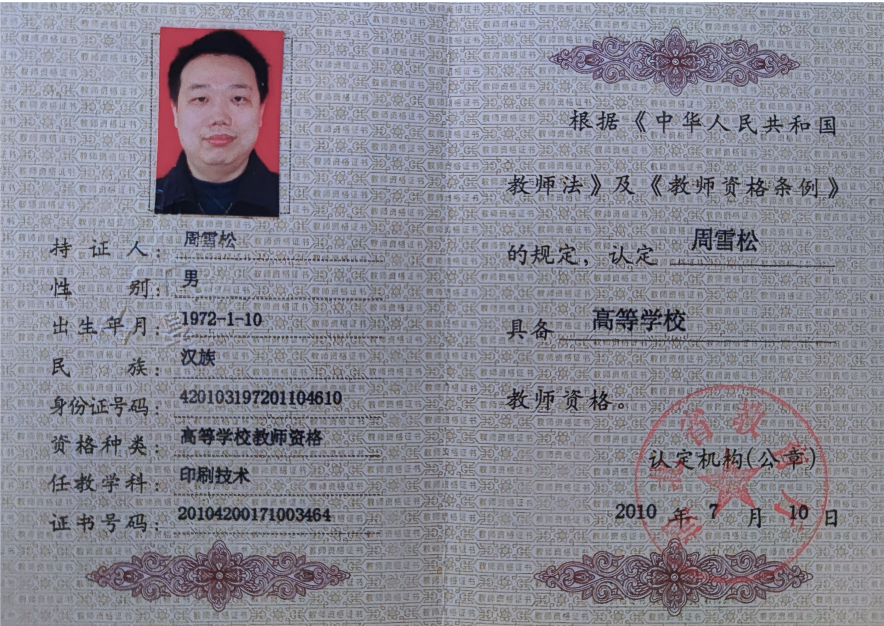 持证人：周雪松
性别：男
出生年月：1972-1-10
民族：汉族
身份证号码：420103197201104610
资格种类：高等学校教师资格
任教学科：印刷技术
证书号码：20104200171003464
根据《中华人民共和国
教师法》及《教师资格条例》
的规定，认定 周雪松
具备 高等学校
教师资格。
省教育厅
认定机构(公章)
2010 年 7 月 10 日